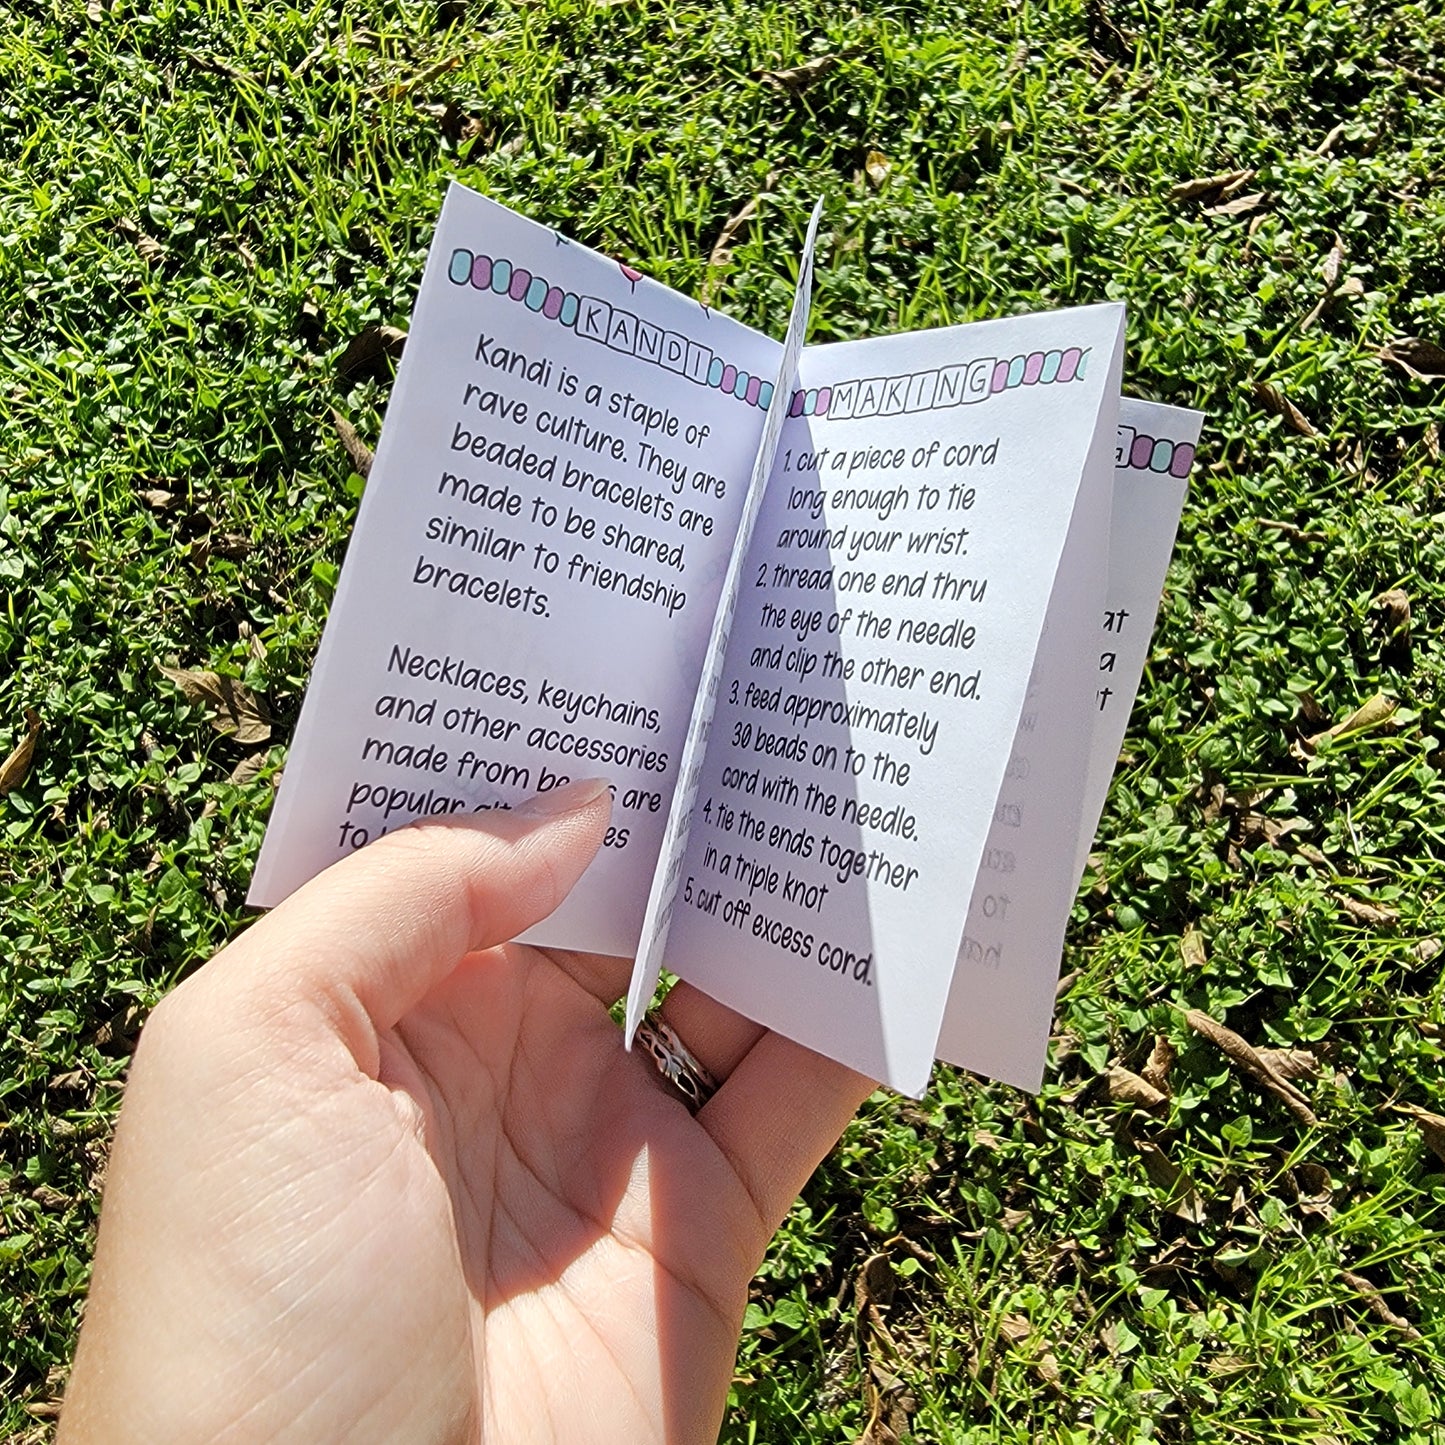 KANDI
Kandi is a staple of
rave culture. They are
beaded bracelets are
made to be shared,
similar to friendship
bracelets.
Necklaces, keychains,
and other accessories
made from are
popular
to
MAKING
1. cut a piece of cord
long enough to tie
around your wrist.
2. thread one end thru
the eye of the needle
and clip the other end.
3. feed approximately
30 beads on to the
cord with the needle.
4. tie the ends together
in a triple knot
5. cut off excess cord.
G
at
a